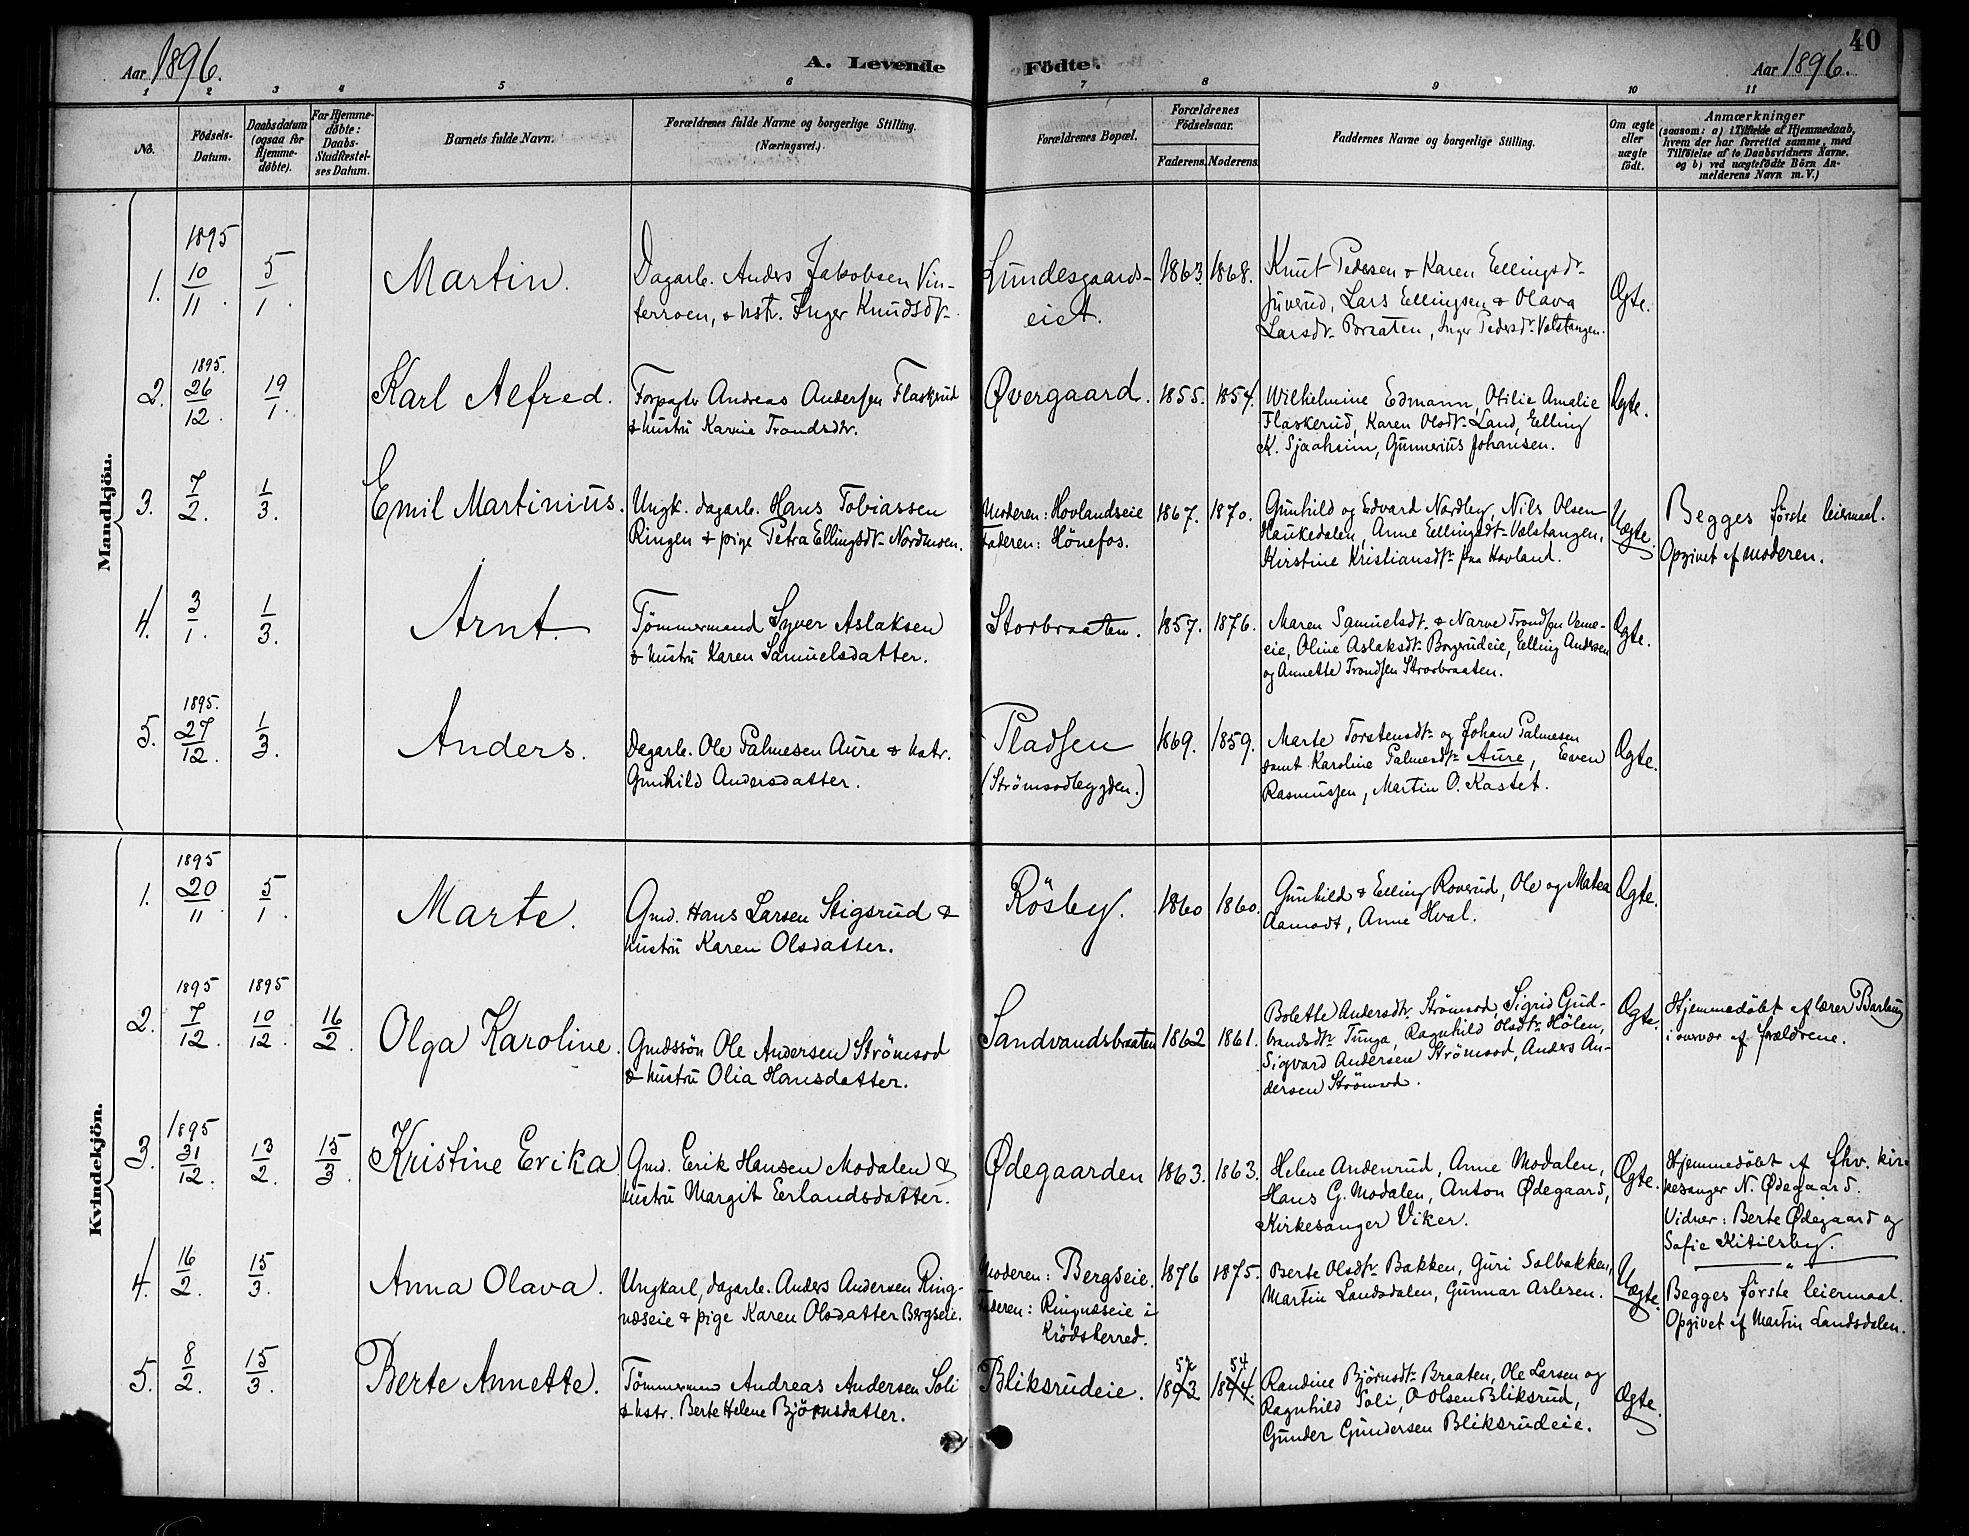 Aar 1896.
A. Levende Födte.
40
Aar 1896.
1 2 3 4 5 6 7 8 9 10 11
No.
Födsels-Datum.
Daabsdatum (ogsaa for Hjemme-döbte).
For Hjemme-döbte: Daabs-Stadfæstel-ses Datum.
Barnets fulde Navn.
Forældrenes fulde Navne og borgerlige Stilling. (Næringsvei.)
Forældrenes Bopæl.
Forældrenes Födselsaar.
Faderens. Moderens.
Faddernes Navne og borgerlige Stilling.
Om ægte eller uægte födt.
Anmærkninger
(saasom: a) i Tilfælde af Hjemmedaab, hvem der har forrettet samme, med Tilföielse af to Daabsvidners Navne. og b) ved uægtefödte Börn Anmelderens Navn m. V.)
Mandkjön.
1895
1. 10/11. 5/1. Martin.
Dagarb. Anders Jakobsen Vin-
terroen, & hstr. Inger Knudsdtr.
Lundesgaards-
eiet.
1863. 1868.
Knut Pedersen & Karen Ellingsdtr
Juverud, Lars Ellingsen & Olava
Larsdtr Braaten, Inger Pedersdtr Valstangen.
Ægte.
1895.
2. 26/12. 19/1. Karl Alfred.
Forpagtr Andreas Andersen Flaskerud
& hustru Karine Trondsdtr.
Øvergaard. 1855. 1854.
Wilhelmine Edmann, Otilie Amalie
Flaskerud, Karen Olsdtr Land, Elling
K. Sjaaheim, Gunnerius Johansen.
Ægte.
3. 7/2. 1/3. Emil Martinius.
Ungk. dagarb. Hans Tobiassen
Ringen & pige Petra Ellingsdtr Nordmoen.
Moderen: Hovlandseie
Faderen: Hönefos.
1867. 1870.
Gunhild og Edvard Nordby, Nils Olsen
Haukedalen, Anne Ellingsdtr Valstangen,
Kirstine Kristiansdtr fra Hovland.
Uægte.
Begges förste leiermaal.
Opgivet af moderen.
4. 3/1. 1/3. Arnt.
Tömmermand Syver Aslaksen
& hustru Karen Samuelsdatter.
Storbraaten. 1857. 1876.
Maren Samuelsdtr & Narve Trondsen Veme-
eie, Oline Aslaksdtr Borgerudeie, Elling Andersen
og Annette Trondsen Strorbraaten.
Ægte.
1895.
5. 27/12. 1/3. Anders.
Dagarb. Ole Palmesen Aure & hstr.
Gunhild Andersdatter.
Pladsen
(Strömsodbygden.)
1869. 1859.
Marte Torstensdtr og Johan Palmesen
samt Karoline Palmesdtr Aure, Even
Rasmussen, Martin O. Kastet.
Ægte.
Kvindekjön.
1895
1. 20/11 5/1. Marte.
Gmd. Hans Larsen Stigsrud &
hustru Karen Olsdatter.
Rösby. 1860 1860.
Gunhild & Elling Roverud, Ole og Matea
Aamodt, Anne Hval.
Ægte.
1895 1895
2. 7/12. 10/12. 16/2. Olga Karoline.
Gmdssön Ole Andersen Strömsod
& hustru Olia Hansdatter.
Sandvandsbraaten 1862 1861.
Bolette Andersdtr. Strömsod, Sigrid Gud-
brandsdtr Tunga, Ragnhild Olsdtr Hölen,
Sigvard Andersen Strömsod, Anders An-
dersen Strömsod.
Ægte.
Hjemmedöbt af lærer Barlaug
i overvær af forældrene.
1895
3. 31/12. 13/2. 15/3. Kristine Erika
Gmd. Erik Hansen Modalen &
hustru Margit Erlandsdatter.
Ødegaarden 1863. 1863.
Helene Andenrud, Anne Modalen,
Hans G. Modalen, Anton Ødegaard,
Kirkesanger Viker.
Ægte.
Hjemmedöbt af fhv. kir-
kesanger N. Ødegaard.
Vidner: Berte Ødegaard og
Sofie Kitilsby.
4. 16/2. 15/3. Anna Olava.
Ungkarl, dagarb. Anders Andersen Ring-
næseie & pige Karen Olsdatter Bergseie.
Moderen: Bergseie.
Faderen: Ringnæseie i
Krödsherred.
1876 1875.
Berte Olsdtr Bakken, Guri Solbakken,
Martin Landsdalen, Gunnar Aslesen.
Uægte.
Begges förste leiermaal.
Opgivet af Martin Landsdalen.
5. 8/2. 15/3. Berte Annette.
Tömmermand Andreas Andersen Soli
& hstr. Berte Helene Björnsdatter.
Bliksrudeie.
Randine Björnsdtr Braaten, Ole Larsen og
Ragnhild Soli, O Olsen Bliksrud,
Gunder Gundersen Bliksrudeie.
Ægte.